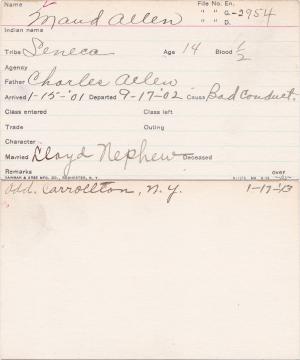 Name Maud Allen File No. En.
" " G.-2954
Indian name " " D.
Tribe Seneca Age 14 Blood 1/2
Agency
Father Charles Allen
Arrived 1-15-'01 Departed 9-17-'02 Cause Bad Conduct.
Class entered Class left
Trade Outing
Character
Married Lloyd Nephew Deceased
Remarks OVER
Add. Carrollton, N.Y. 1-17-'13